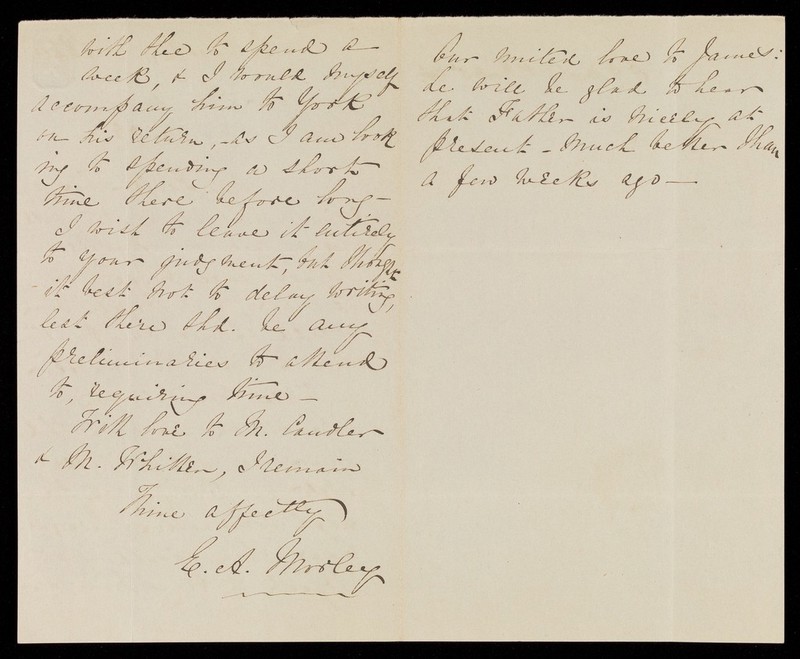 with thee to spend a
week, & I would myself
accompany him to York
on his return, - as I am look
ing to spending a short
time there before long -
I wish to leave it entirely
to your judgment, but thought
it best not to delay writing,
lest there shd. be any
preliminaries to attend
to, requiring time -
With love to M. Candler
& M. Whitten, I remain
Thine affectly
E. A. Morley
Our united love to James:
he will be glad to hear
that Father is nicely at
present - much better than
a few weeks ago -